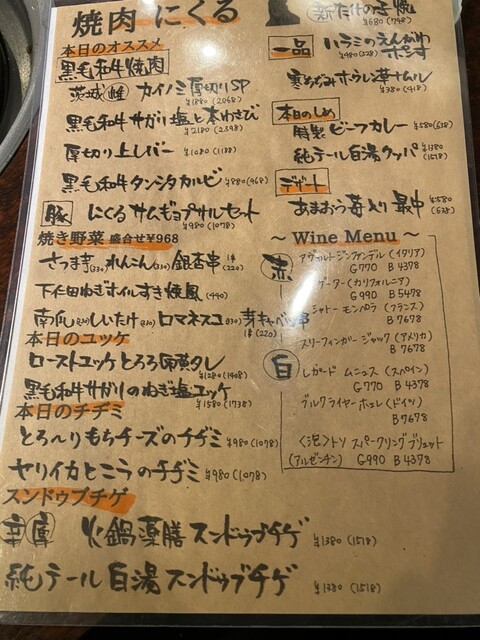 焼肉 にくる
本日のオススメ
黒毛和牛焼肉
茨城(雌) カイノミ厚切りSP ¥1880(2068)
黒毛和牛サガリ塩と本わさび ¥2180(2398)
厚切り上レバー ¥1080(1188)
黒毛和牛タンシタカルビ ¥880(968)
豚 にくるサムギョプサルセット ¥980(1078)
焼き野菜 盛合せ¥968
さつま芋(330) れんこん(330) 銀杏串 1本(220)
下仁田ねぎホイルすき焼風(440)
南瓜 しいたけ ロマネスコ 芽キャベツ串 1本(220)
本日のユッケ
ローストユッケとろろ タレ ¥1280(1408)
黒毛和牛サガリのねぎ塩ユッケ ¥1580(1738)
本日のチヂミ
とろ〜りもちチーズのチヂミ ¥980(1078)
ヤリイカとニラのチヂミ ¥980(1078)
スンドゥブチゲ
辛 火鍋薬膳スンドゥブチゲ ¥1380(1518)
純テール白湯スンドゥブチゲ ¥1380(1518)
焼 ¥680(748)
一品 ハラミのえんがわポン酢 ¥480(528)
寒ちぢみホウレン草ナムル ¥380(418)
本日のしめ
特製ビーフカレー ¥580(638)
純テール白湯クッパ ¥1380(1518)
デザート
あまおう苺入り最中 ¥580(638)
〜 Wine Menu 〜
赤 (イタリア)
G770 B4378
(カリフォルニア)
G990 B5478
シャトー モンペラ (フランス)
B7678
スリーフィンガー ジャック (アメリカ)
B7678
白 レガード ムニュス (スペイン)
G770 B4378
(ドイツ)
B7678
〈泡〉トソ スパークリングブリュット
(アルゼンチン) G990 B4378